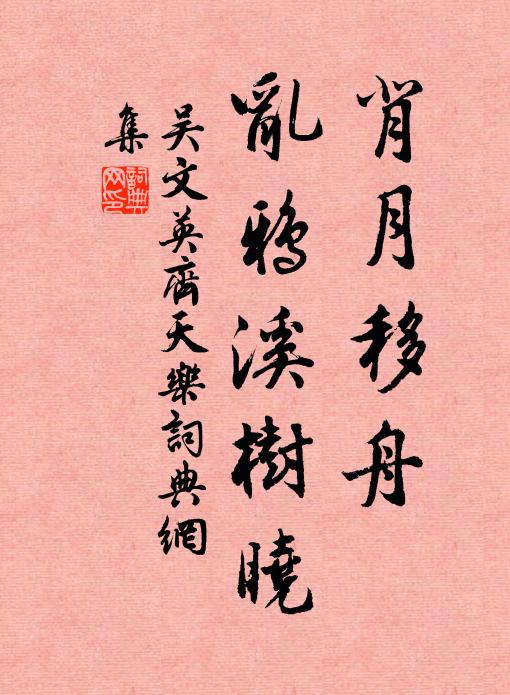 背月移舟
亂鴉溪樹曉
吳文英齊天樂詞典網
集
詞典網印